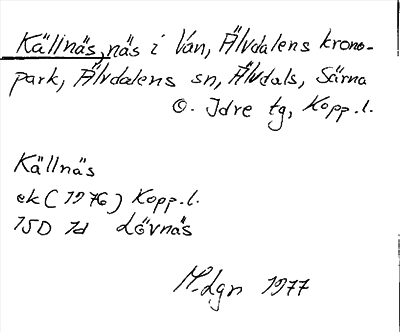 Källnäs, näs i Ván, Älvdalens krono-
park, Älvdalens sn, Älvdals, Särna
o. Idre tg, Kopp. l.
Källnäs
ek (1976) Kopp. l.
15D 1d Lövnäs
M. Lgn 1977